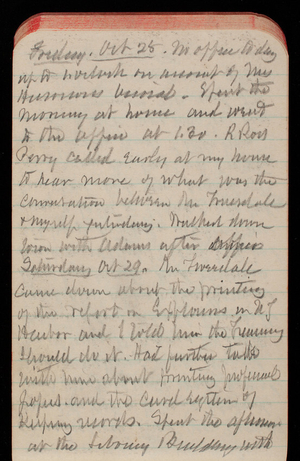 Friday. Oct 28. In office to day
up to o'clock on account of Mrs
. Spent the
morning at home and went
to the office at 1.30. R Ross
Perry called early at my house
to hear more of what was the
conversation between Mr Truesdale
& myself yesterday. Walked down
town with Adams after
Saturday Oct 29. Mr Truesdale
came down about the printing
of the report on Explosions in N.Y
Harbor and I told him the Treasury
should do it. Had further talk
with him about printing
papers and the card system of
keeping records. Spent the afternoon
at the Library Building with